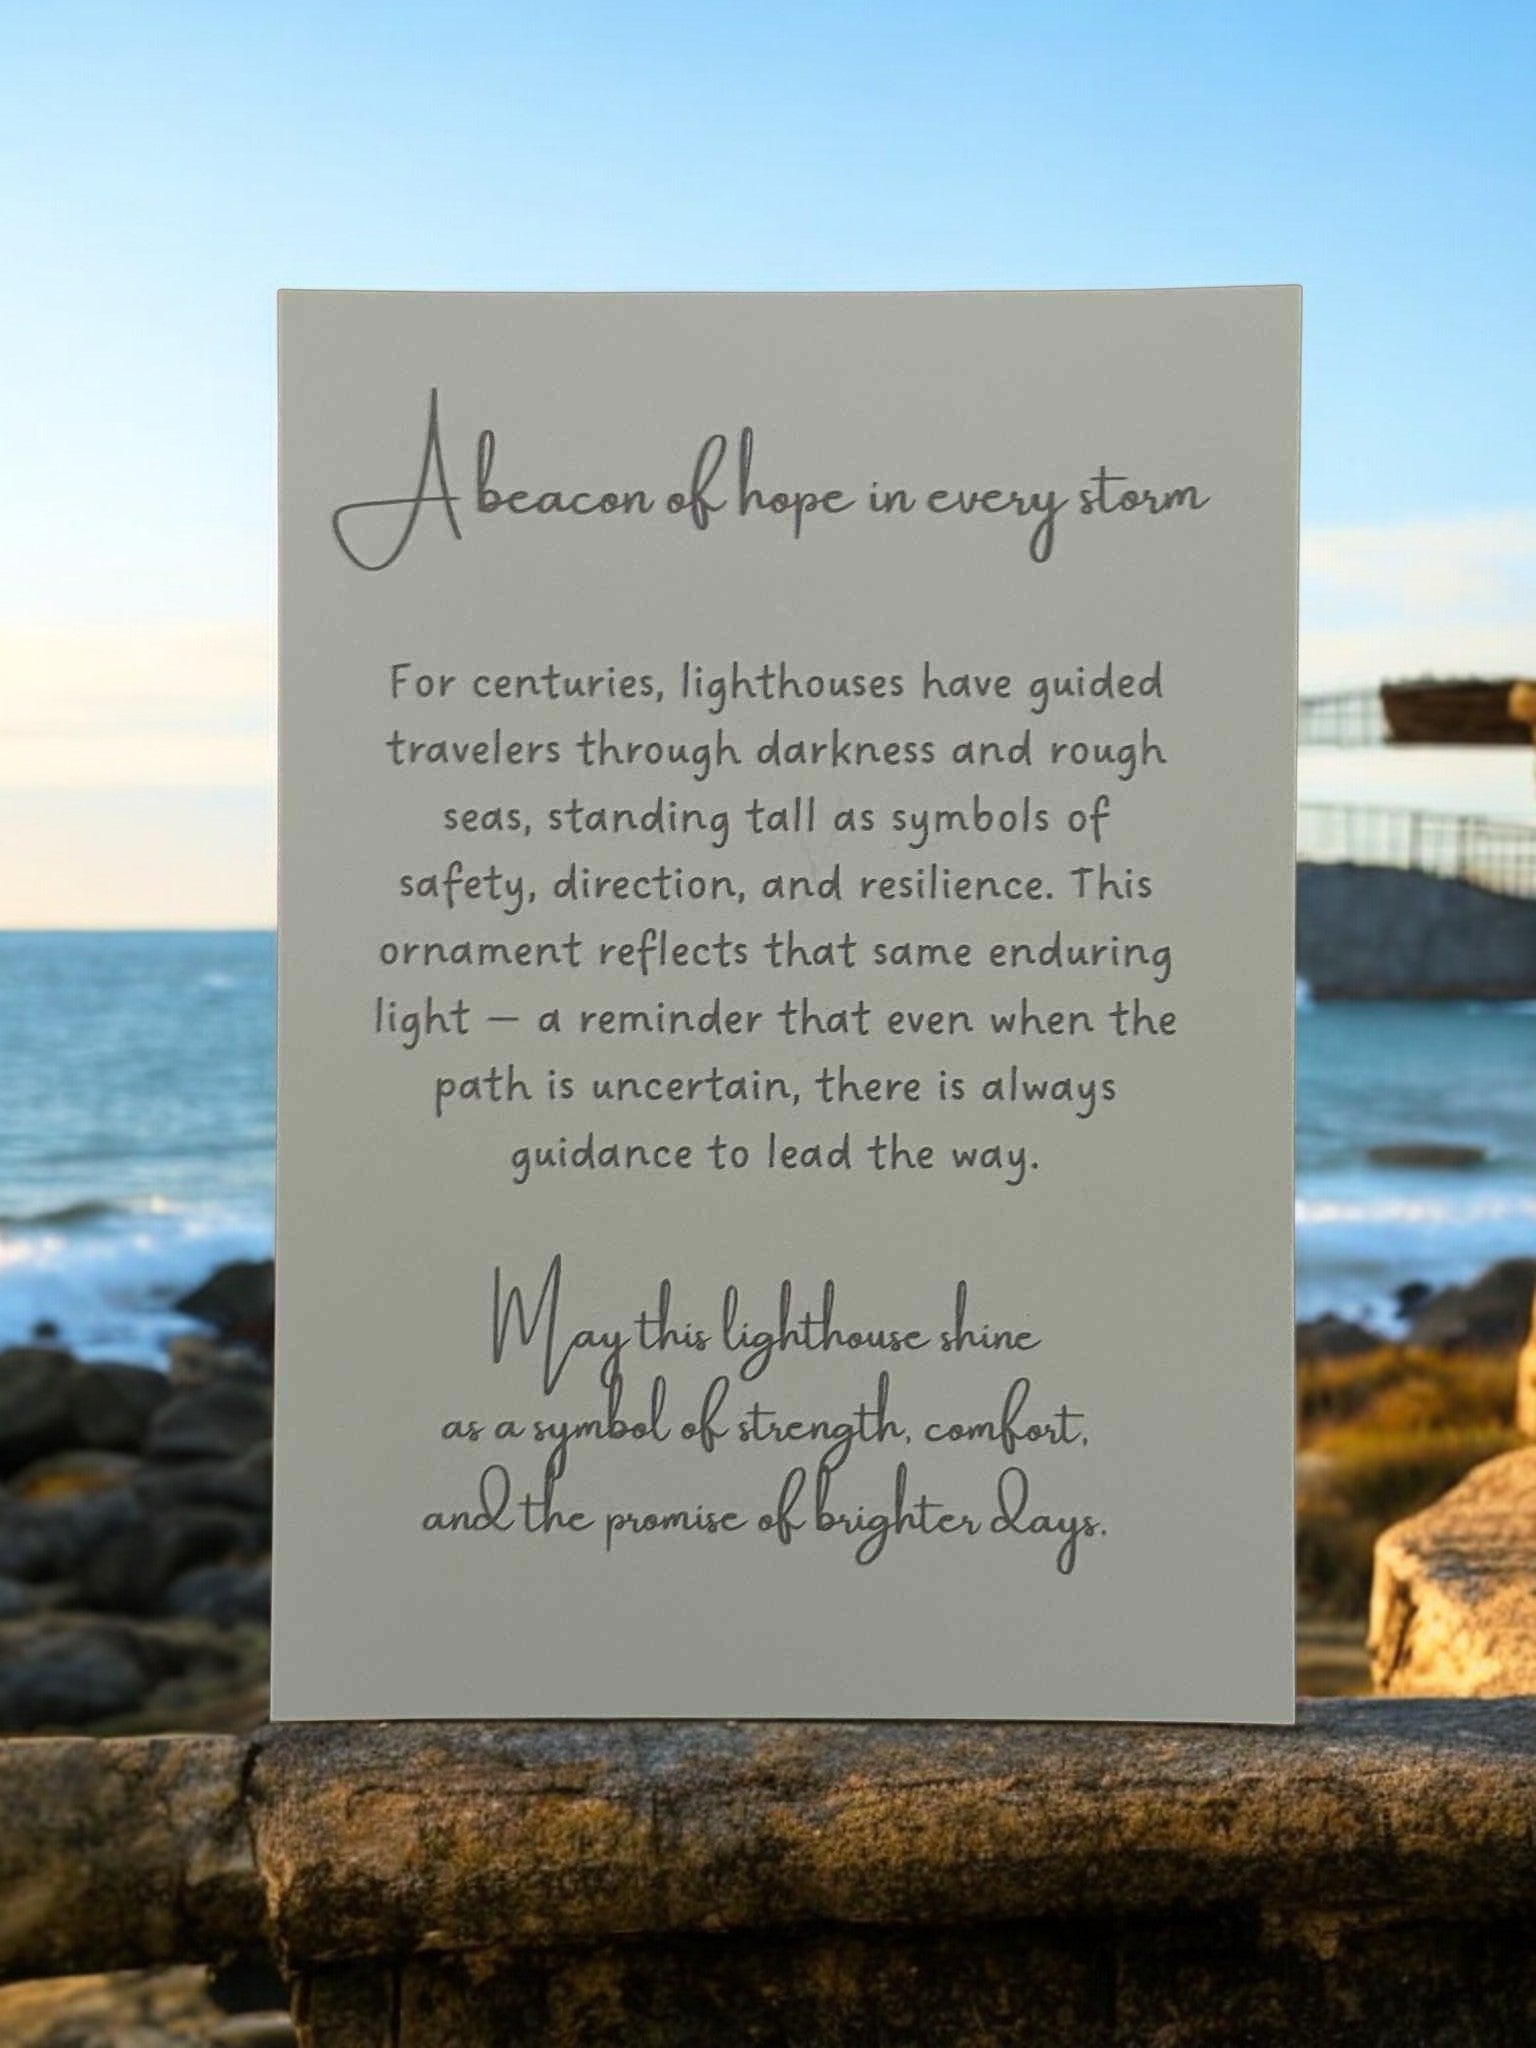 A beacon of hope in every storm
For centuries, lighthouses have guided
travelers through darkness and rough
seas, standing tall as symbols of
safety, direction, and resilience. This
ornament reflects that same enduring
light — a reminder that even when the
path is uncertain, there is always
guidance to lead the way.
May this lighthouse shine
as a symbol of strength, comfort,
and the promise of brighter days.